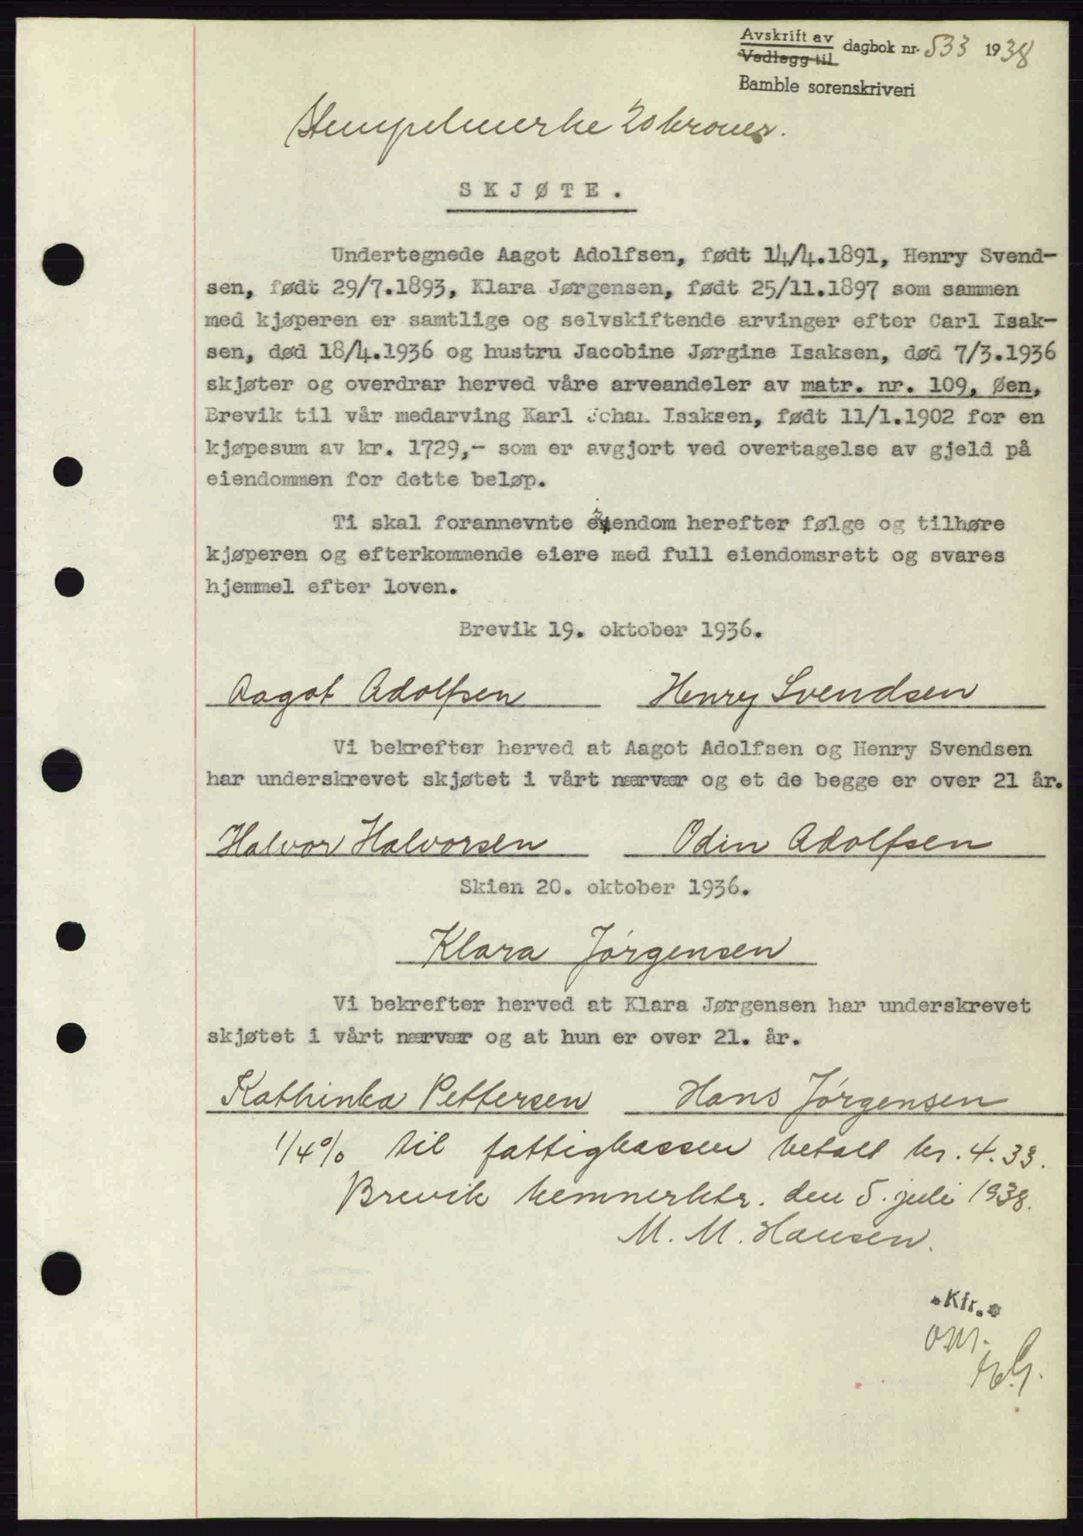 Avskrift av
Vedlegg til dagbok nr. 533 1938
Bamble sorenskriveri
Stempelmerke 20 kroner.
SKJØTE.
Undertegnede Aagot Adolfsen, født 14/4.1891, Henry Svend-
sen, født 29/7.1893, Klara Jørgensen, født 25/11.1897 som sammen
med kjøperen er samtlige og selvskiftende arvinger efter Carl Isak-
sen, død 18/4.1936 og hustru Jacobine Jørgine Isaksen, død 7/3.1936
skjøter og overdrar herved våre arveandeler av matr. nr. 109, Øen,
Brevik til vår medarving Karl Johan Isaksen, født 11/1.1902 for en
kjøpesum av kr. 1729,- som er avgjort ved overtagelse av gjeld på
eiendommen for dette beløp.
Ti skal forannevnte eiendom herefter følge og tilhøre
kjøperen og efterkommende eiere med full eiendomsrett og svares
hjemmel efter loven.
Brevik 19. oktober 1936.
Aagot Adolfsen Henry Svendsen
Vi bekrefter herved at Aagot Adolfsen og Henry Svendsen
har underskrevet skjøtet i vårt nærvær og et de begge er over 21 år.
Halvor Halvorsen Odin Adolfsen
Skien 20. oktober 1936.
Klara Jørgensen
Vi bekrefter herved at Klara Jørgensen har underskrevet
skjøtet i vårt nærvær og at hun er over 21. år.
Kathinka Pettersen Hans Jørgensen
1/4% til fattigkassen betalt kr. 4.33.
Brevik kemnerktr. den 5. juli 1938.
M. M. Hansen.
Kfr.